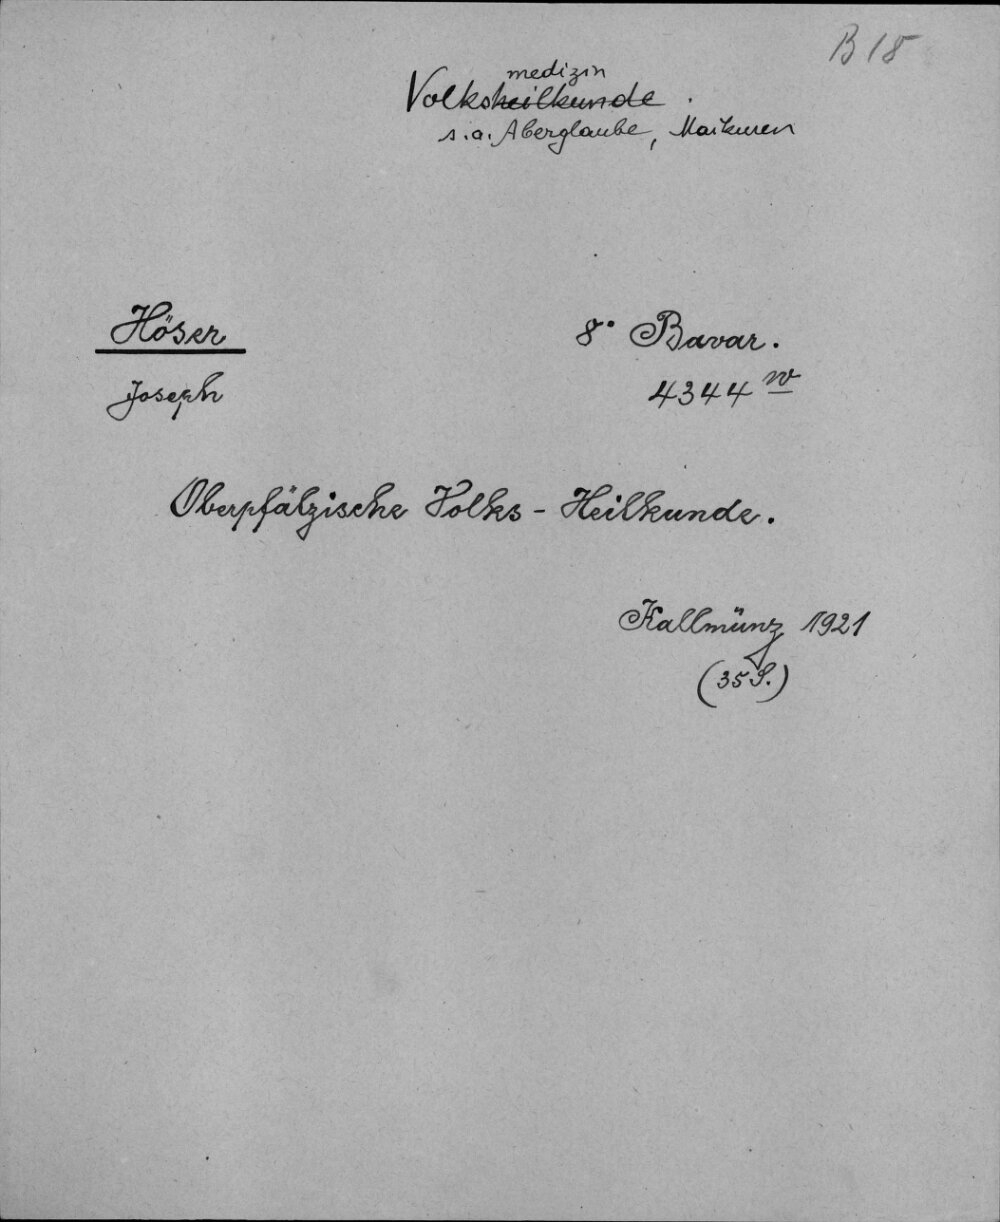 B 18
medizin
Volksheilkunde.
s.a. Aberglaube, Maikuren
Höser
8° Bavar.
Joseph
4344 w
Oberpfälzische Volks-Heilkunde.
Kallmünz 1921
(35 S.)